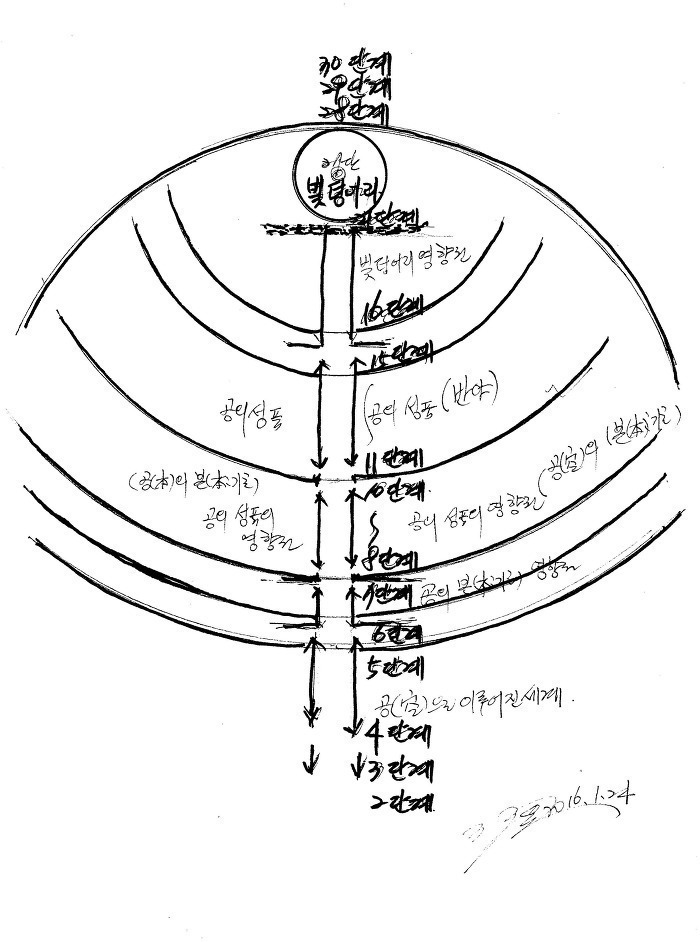 30 단계
29단계
28단계
빛덩어리
단계
빛덩어리 영향권
16단계
15단계
공의성품
공의 성품 (반야)
11단계
10단계
(공(本)의 본(本)기로)
공의 성품의
영향권
공의 성품의 영향권
(공(空)의 (본(本)기로)
8단계
7단계
공의 본(本)기로 영향권
6단계
5단계
공(空)으로 이루어진 세계.
4단계
3단계
2단계
2016.1.24